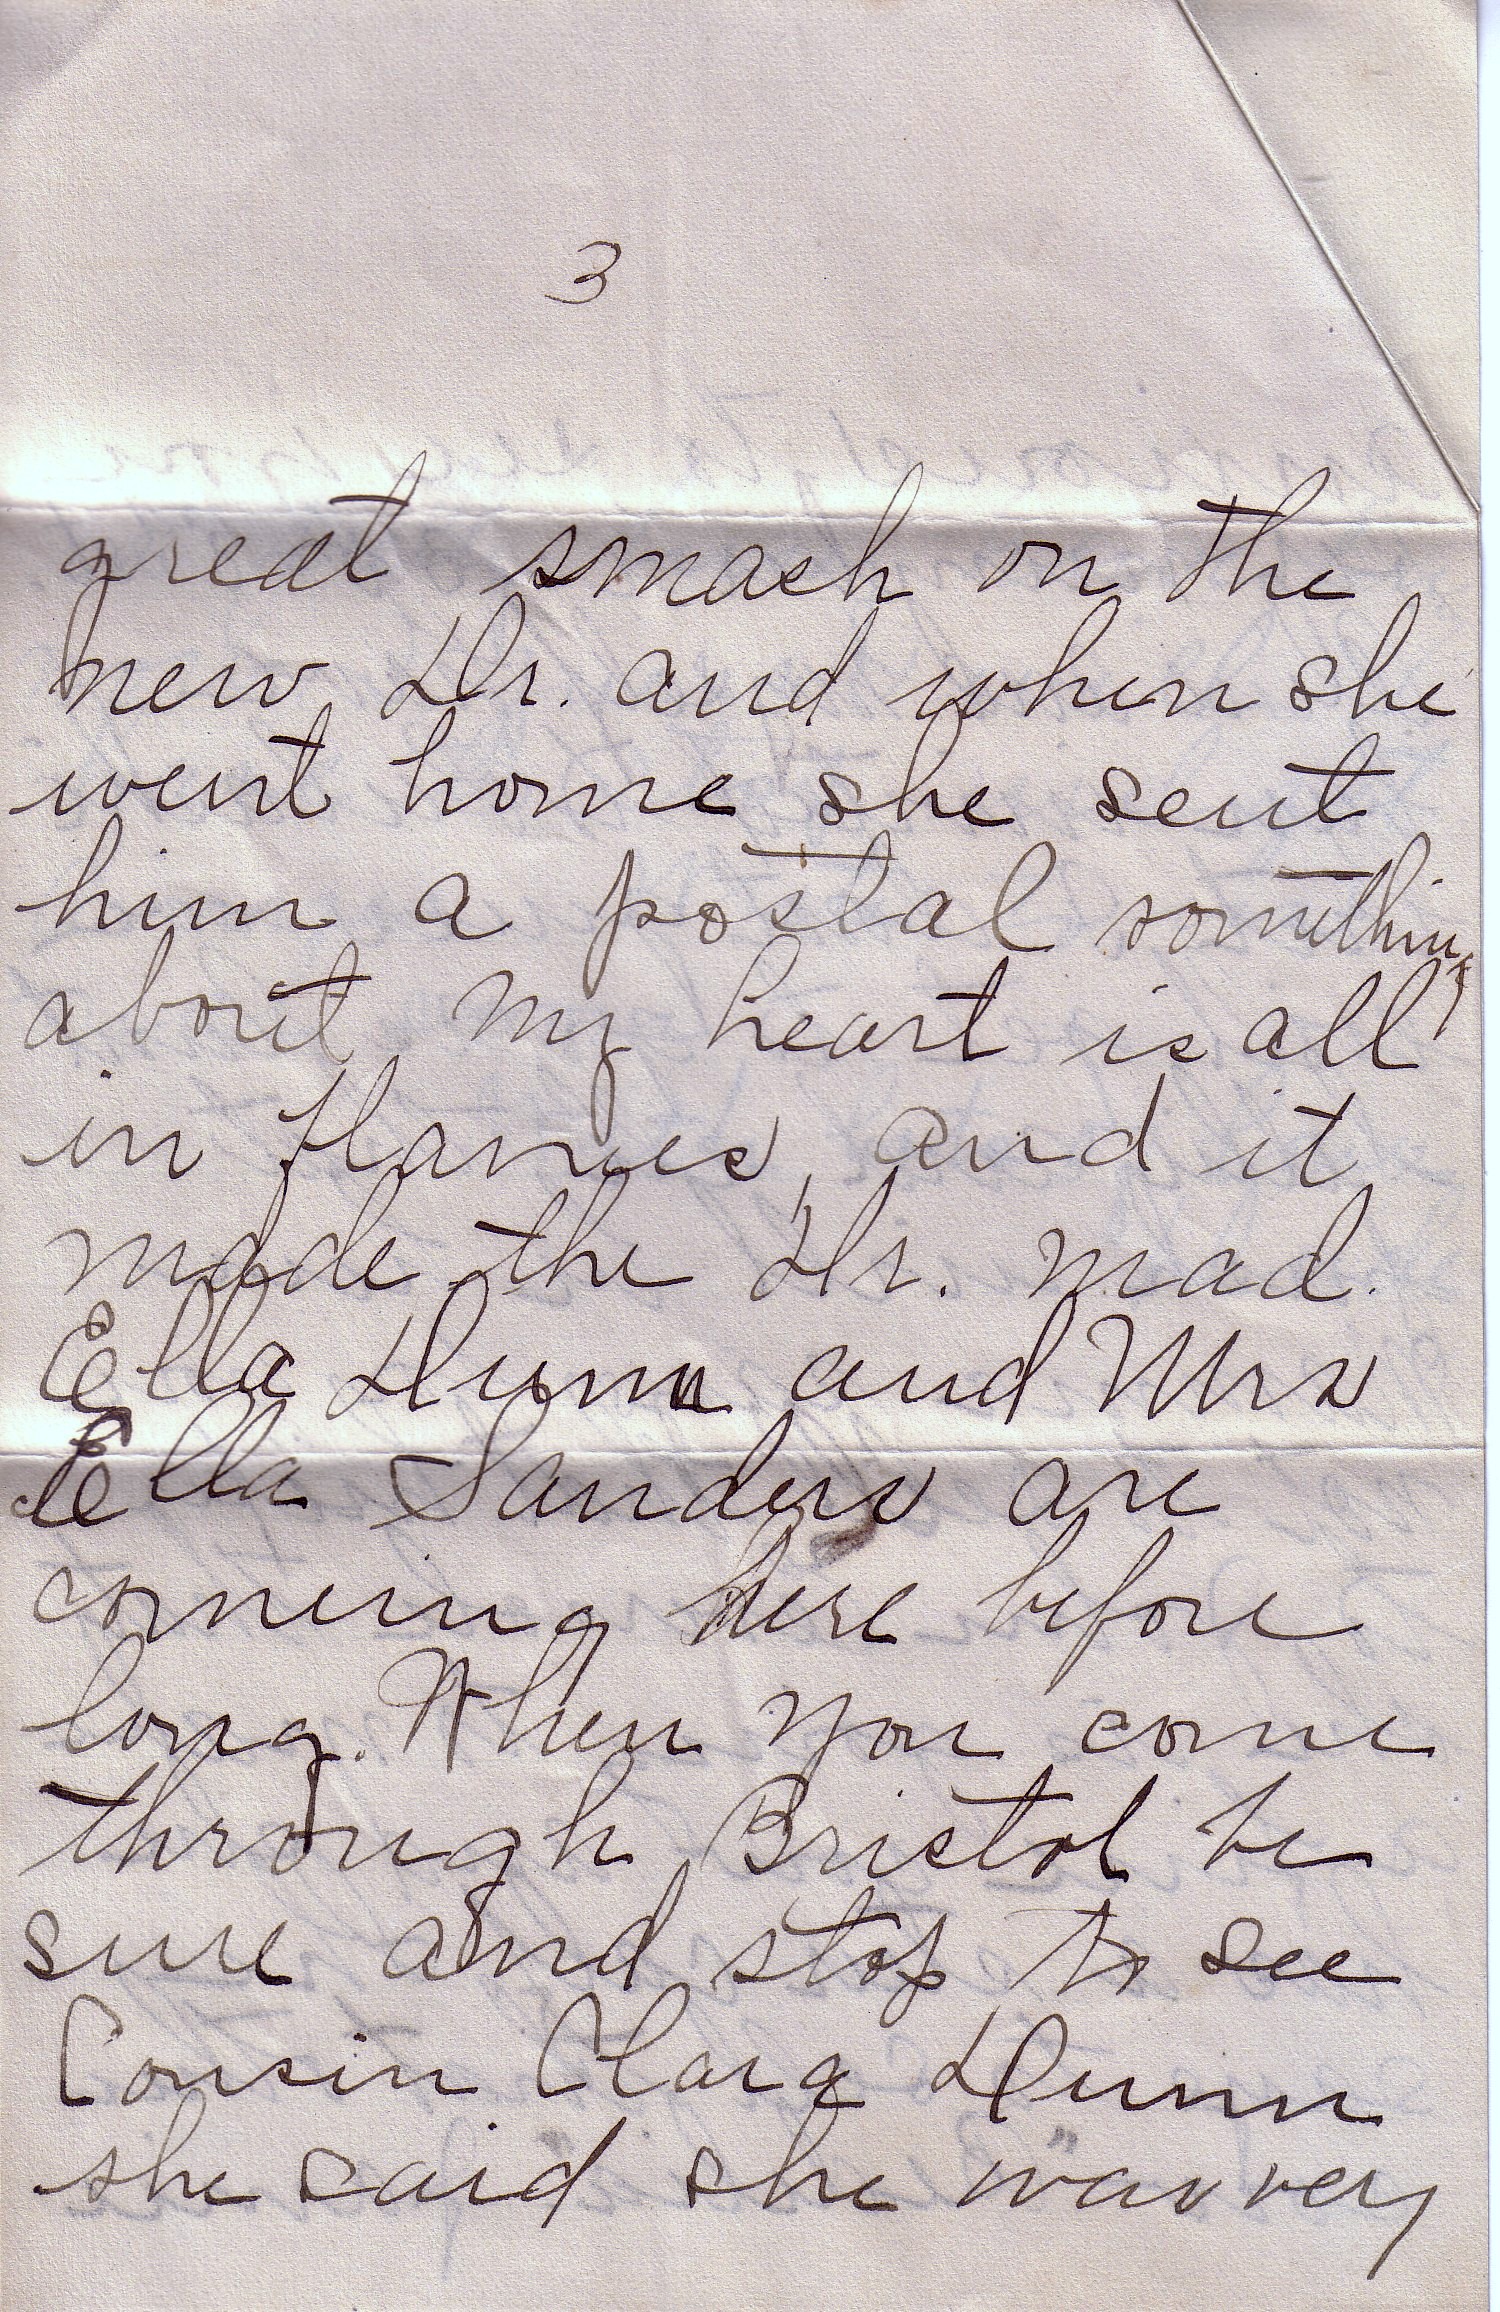 3
great smash on the
new Dr. and when she
went home she sent
him a postal something
about my heart is all
in flames, and it
made the Dr. mad.
Ella Dunn and Mrs
Ella Sanders are
comeing here before
long. When you come
through Bristol be
sure and stop to see
Cousin Clara Dunn
she said she was very